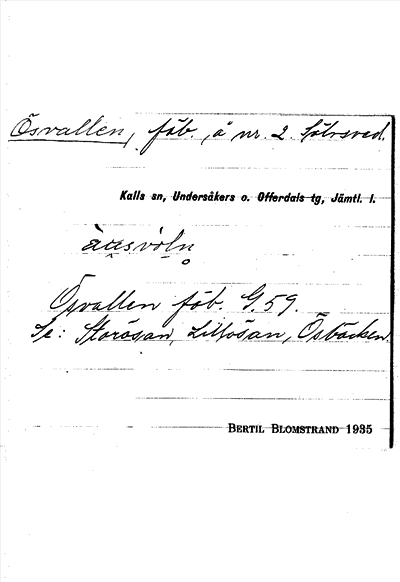 Ösvallen, fäb., å nr. 2 Sölvsved.
Kalls sn, Undersåkers o. Offerdals tg, Jämtl. l.
Ösvallen fäb. G. 59.
Se: Storösan, Lillösan, Ösbäcken.
BERTIL BLOMSTRAND 1935